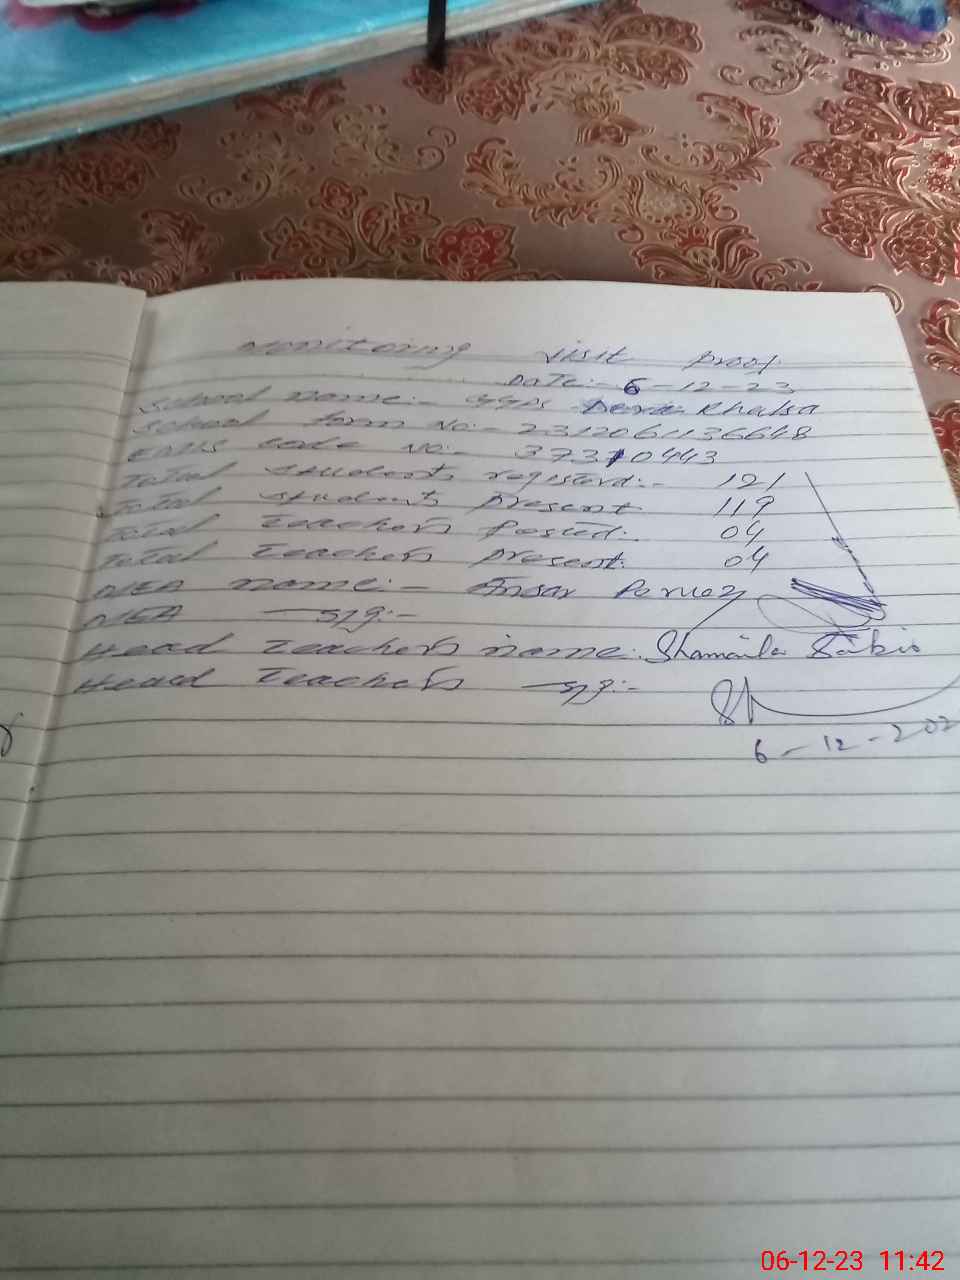 Monitoring visit proof
Date:- 6-12-23
School name:- GGPS Dera Khalsa
School form No:- 2312061136648
EMIS code No:- 37310443
Total students registerd:- 121
Total students present 119
Total Teachers Posted:- 04
Total Teachers present: 04
MEA name:- Ansar Pervez
MEA sig:-
Head Teachers name:- Shamaila Sabir
Head Teachers sig:-
6-12-202
06-12-23 11:42